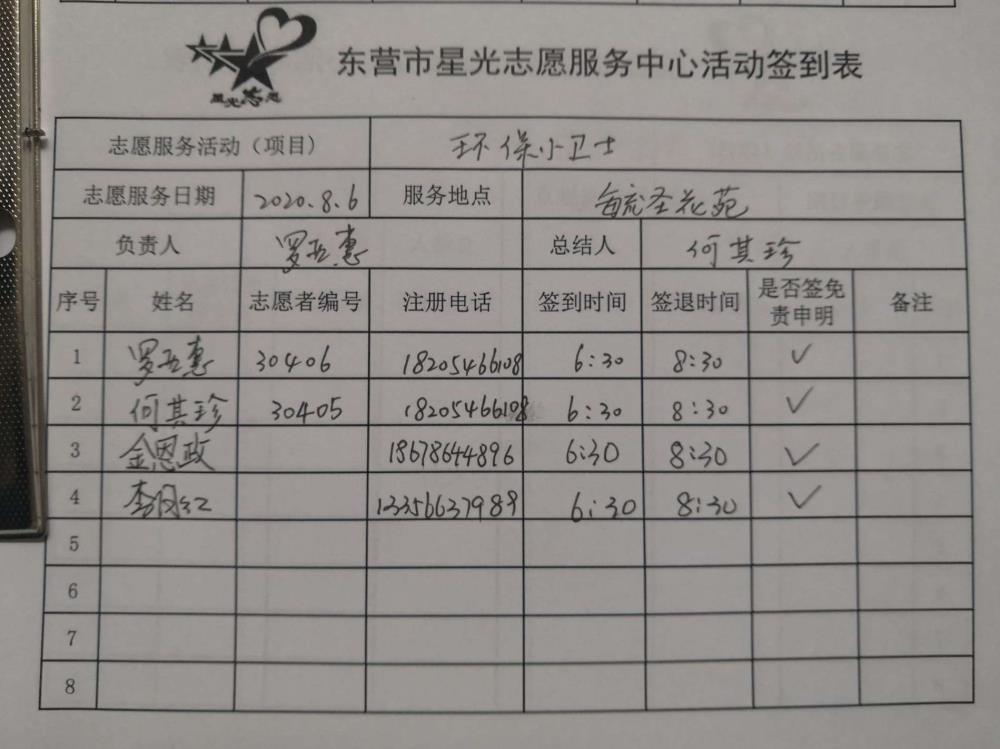 星光志愿
东营市星光志愿服务中心活动签到表
志愿服务活动（项目） 环保小卫士
志愿服务日期 2020.8.6 服务地点 毓圣花苑
负责人 罗五惠 总结人 何其珍
序号 姓名 志愿者编号 注册电话 签到时间 签退时间 是否签免责申明 备注
1 罗五惠 30406 18205466108 6:30 8:30 ✓
2 何其珍 30405 18205466108 6:30 8:30 ✓
3 金恩政 18678644896 6:30 8:30 ✓
4 李月红 13356637989 6:30 8:30 ✓
5
6
7
8